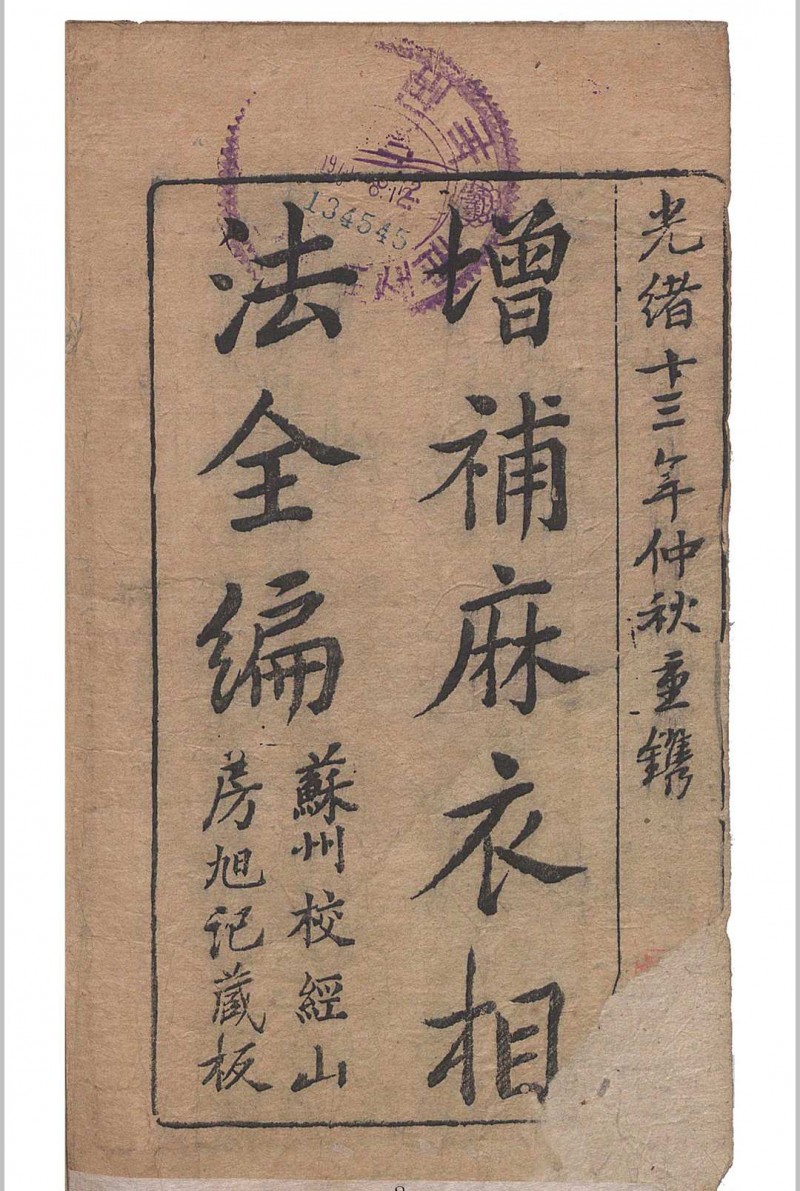 光緒十三年仲秋重鐫
增補麻衣相
法全編
蘇州校經山
房旭記藏板
134545